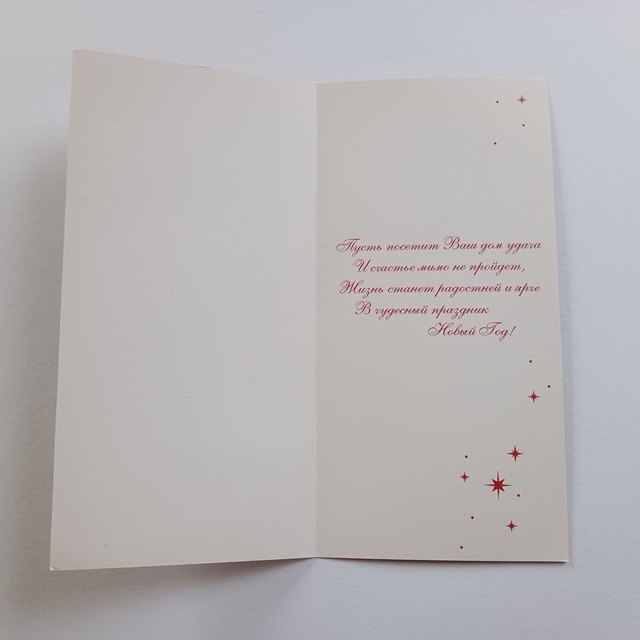 Пусть посетит Ваш дом удача
И счастье мимо не пройдет,
Жизнь станет радостней и ярче
В чудесный праздник
Новый Год!